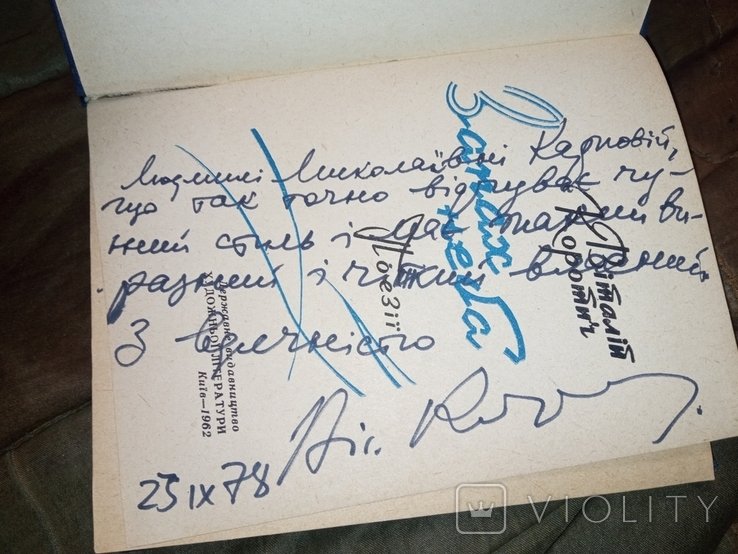 Людмилі Миколаївні Карповій,
що так точно відчуває чу-
жий стиль і має такий ви-
разний і чіткий власний.
З вдячністю
Віт. Корот
25 IX 78
Віталій
Коротич
Запах
неба
Поезії
Державне видавництво
ХУДОЖНЬОЇ ЛІТЕРАТУРИ
Київ—1962
VIOLITY